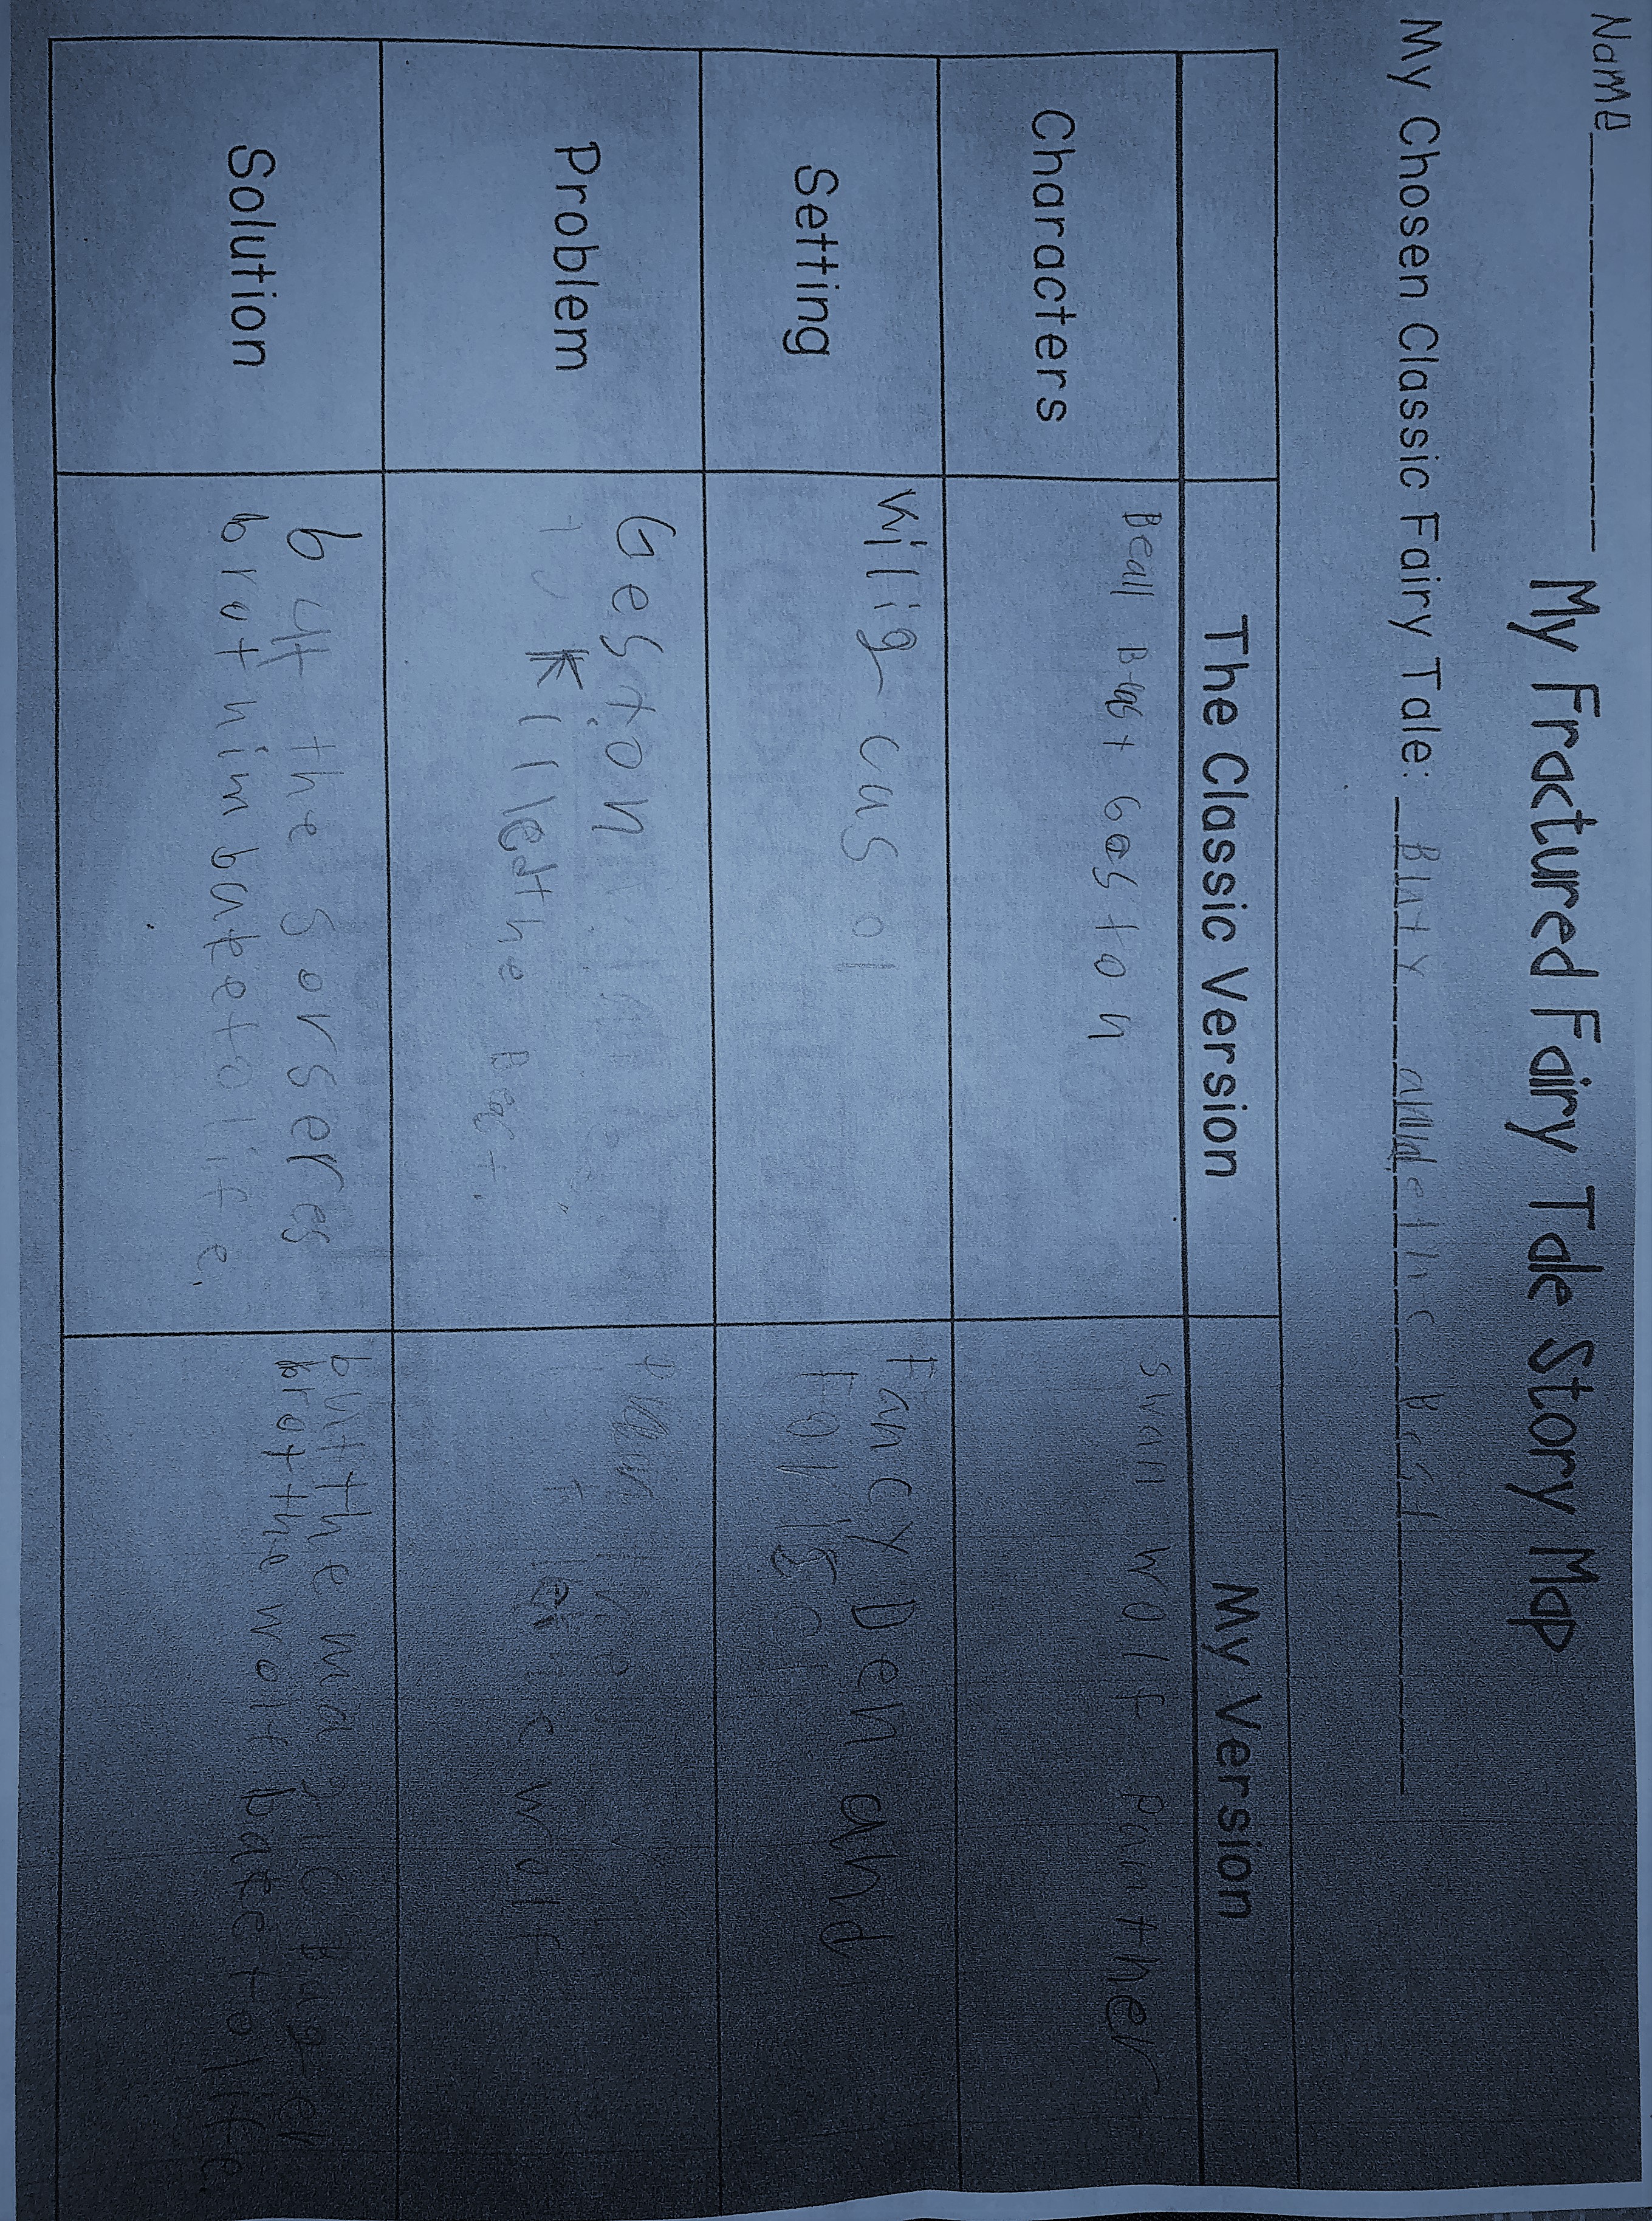 Name
My Fractured Fairy Tale Story Map
My Chosen Classic Fairy Tale: Bluty
The Classic Version My Version
Characters Beall Gaston swan wolf panther
Setting Vilig casol Fancy Den and
Problem Geston
Killed the
the wolf
Solution but the sorseres
brot him bake to life.
but the magic
brot the wolf bake to life